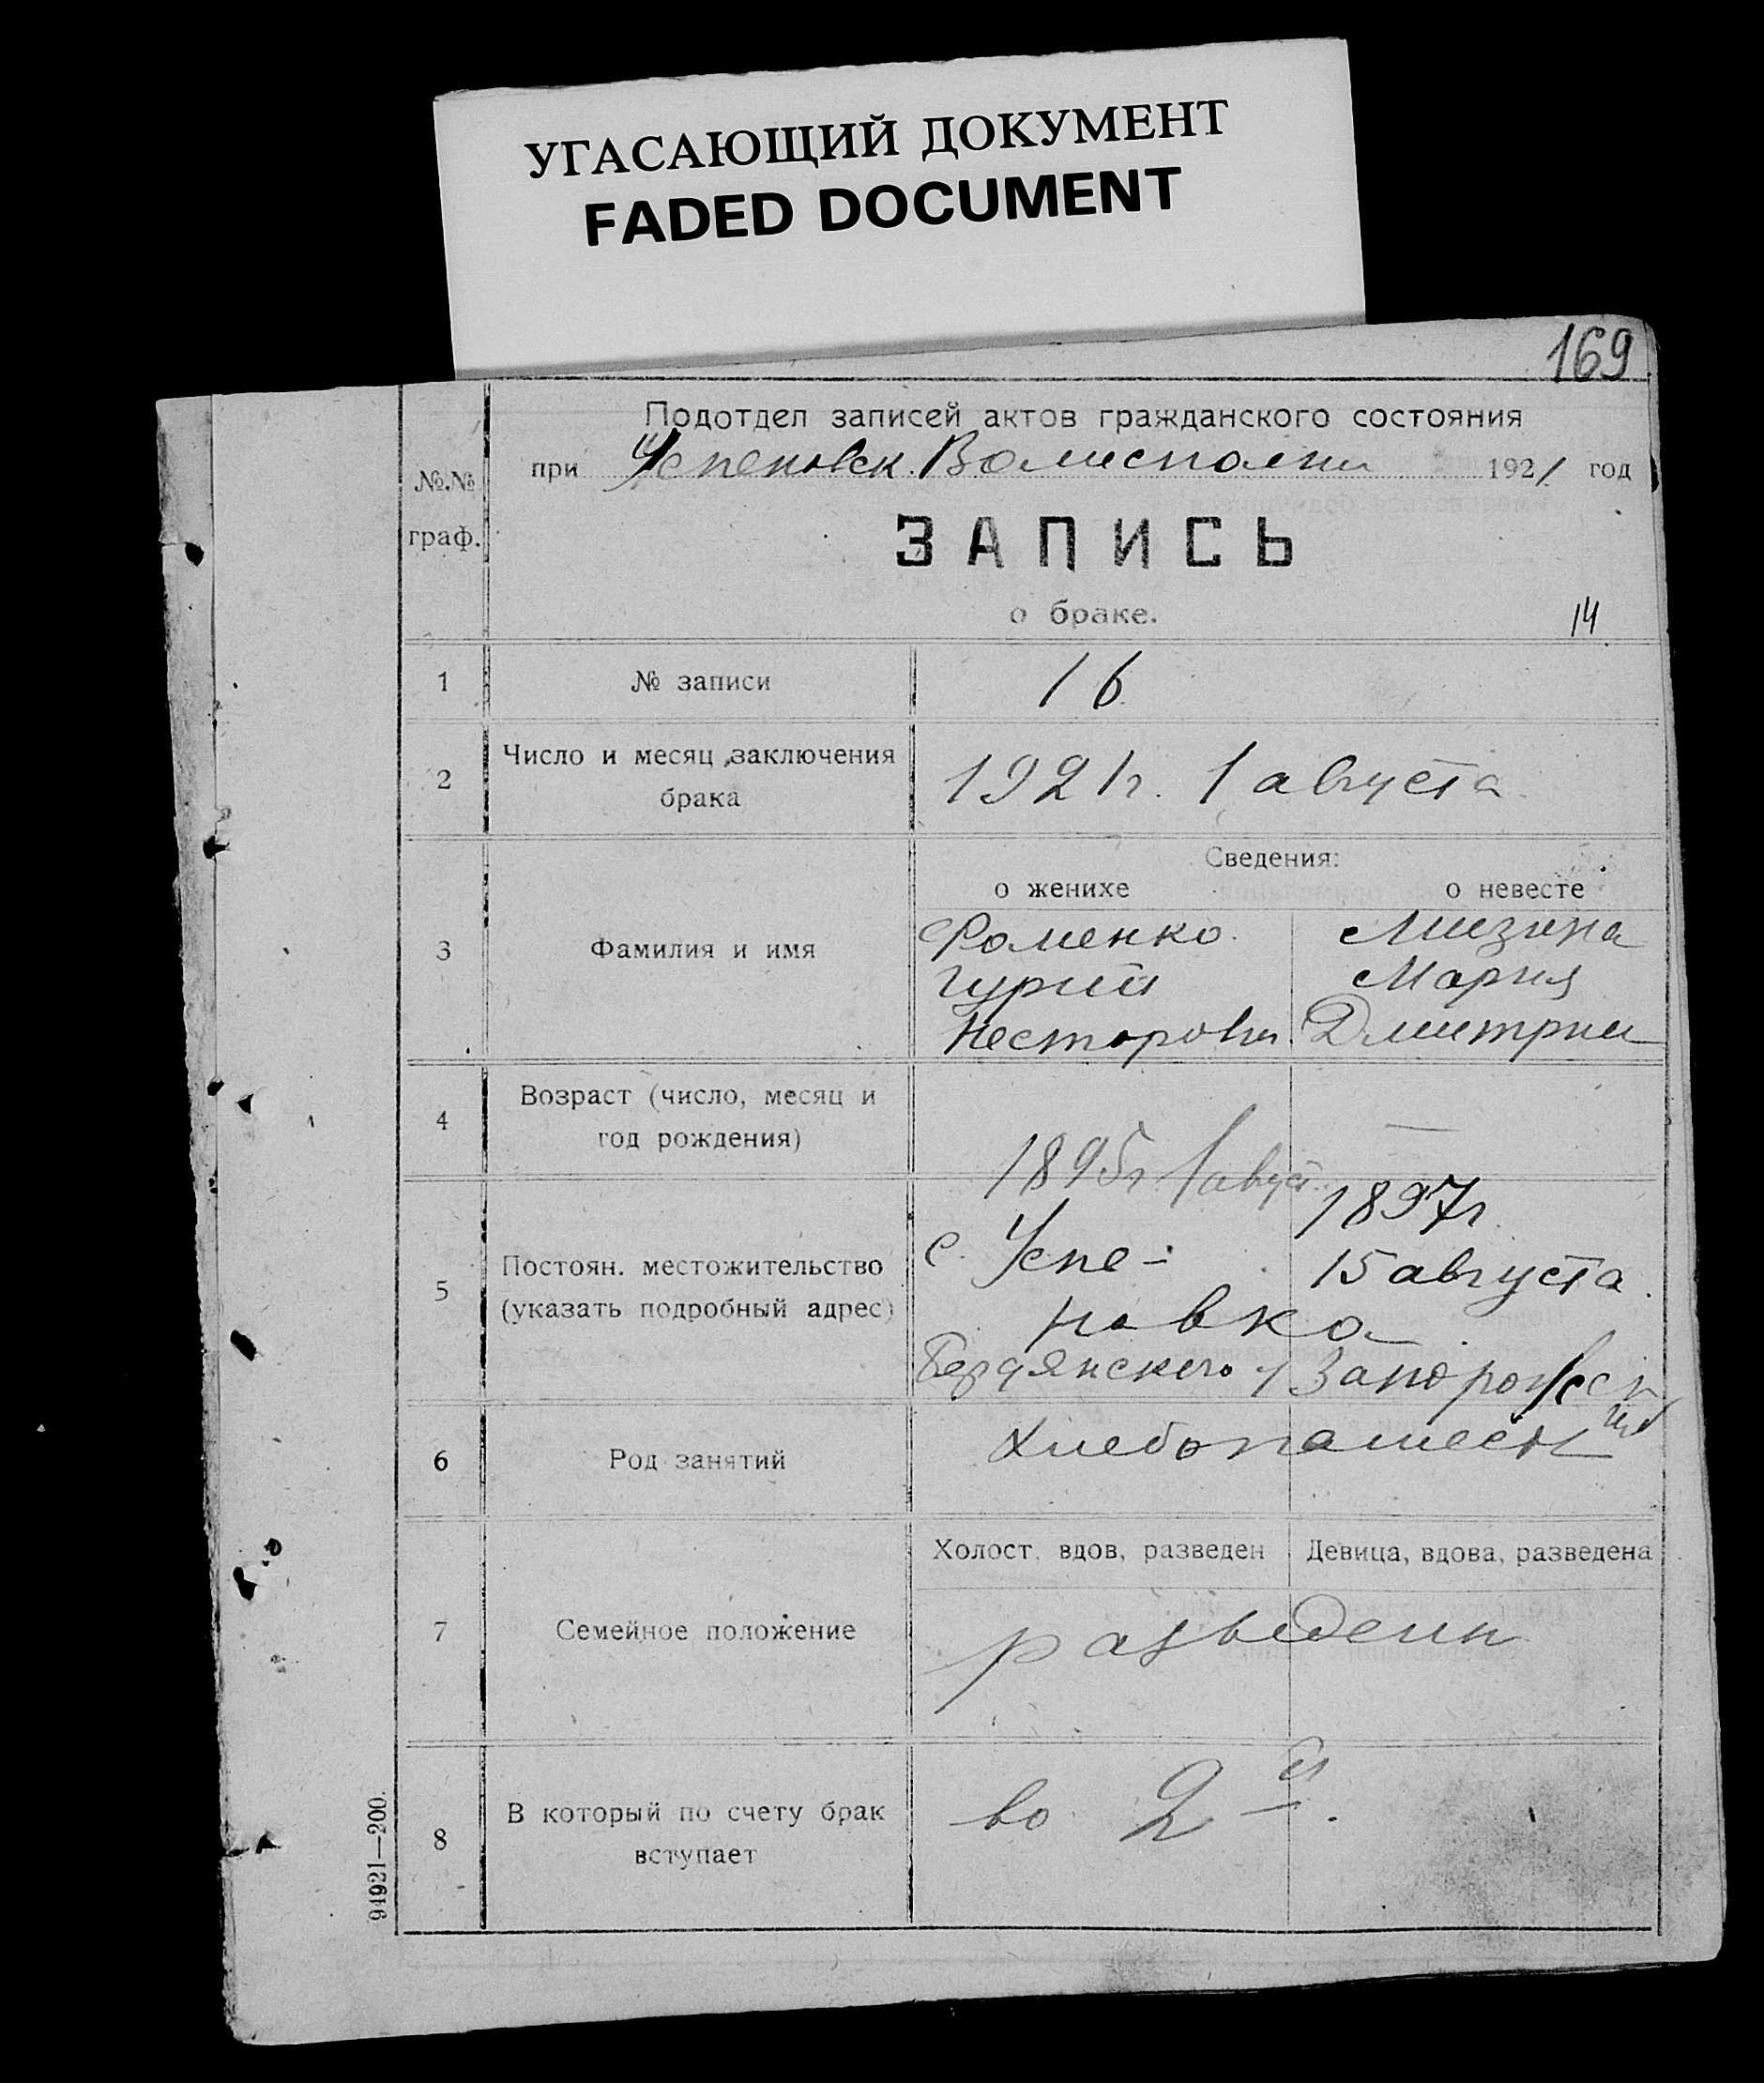 УГАСАЮЩИЙ ДОКУМЕНТ
FADED DOCUMENT
169
Подотдел записей актов гражданского состояния
№.№ граф.
при Успеновск. Волисполки 1921 год
ЗАПИСЬ
о браке.
14
1 № записи 16
2 Число и месяц заключения брака 1921г. 1 августа
Сведения:
о женихе о невесте
3 Фамилия и имя
Фоменко Мизина
Гурий Мария
Несторович Дмитрии
4 Возраст (число, месяц и год рождения)
1895г 1 август
1897г
15 августа
5 Постоян. местожительство (указать подробный адрес)
с. Успе-
новка
Бердянского у Запорожск
губ
6 Род занятий
Хлебопашест
Холост, вдов, разведен Девица, вдова, разведена
7 Семейное положение
разведенн
8 В который по счету брак вступает
во 2 ой
94921—200.